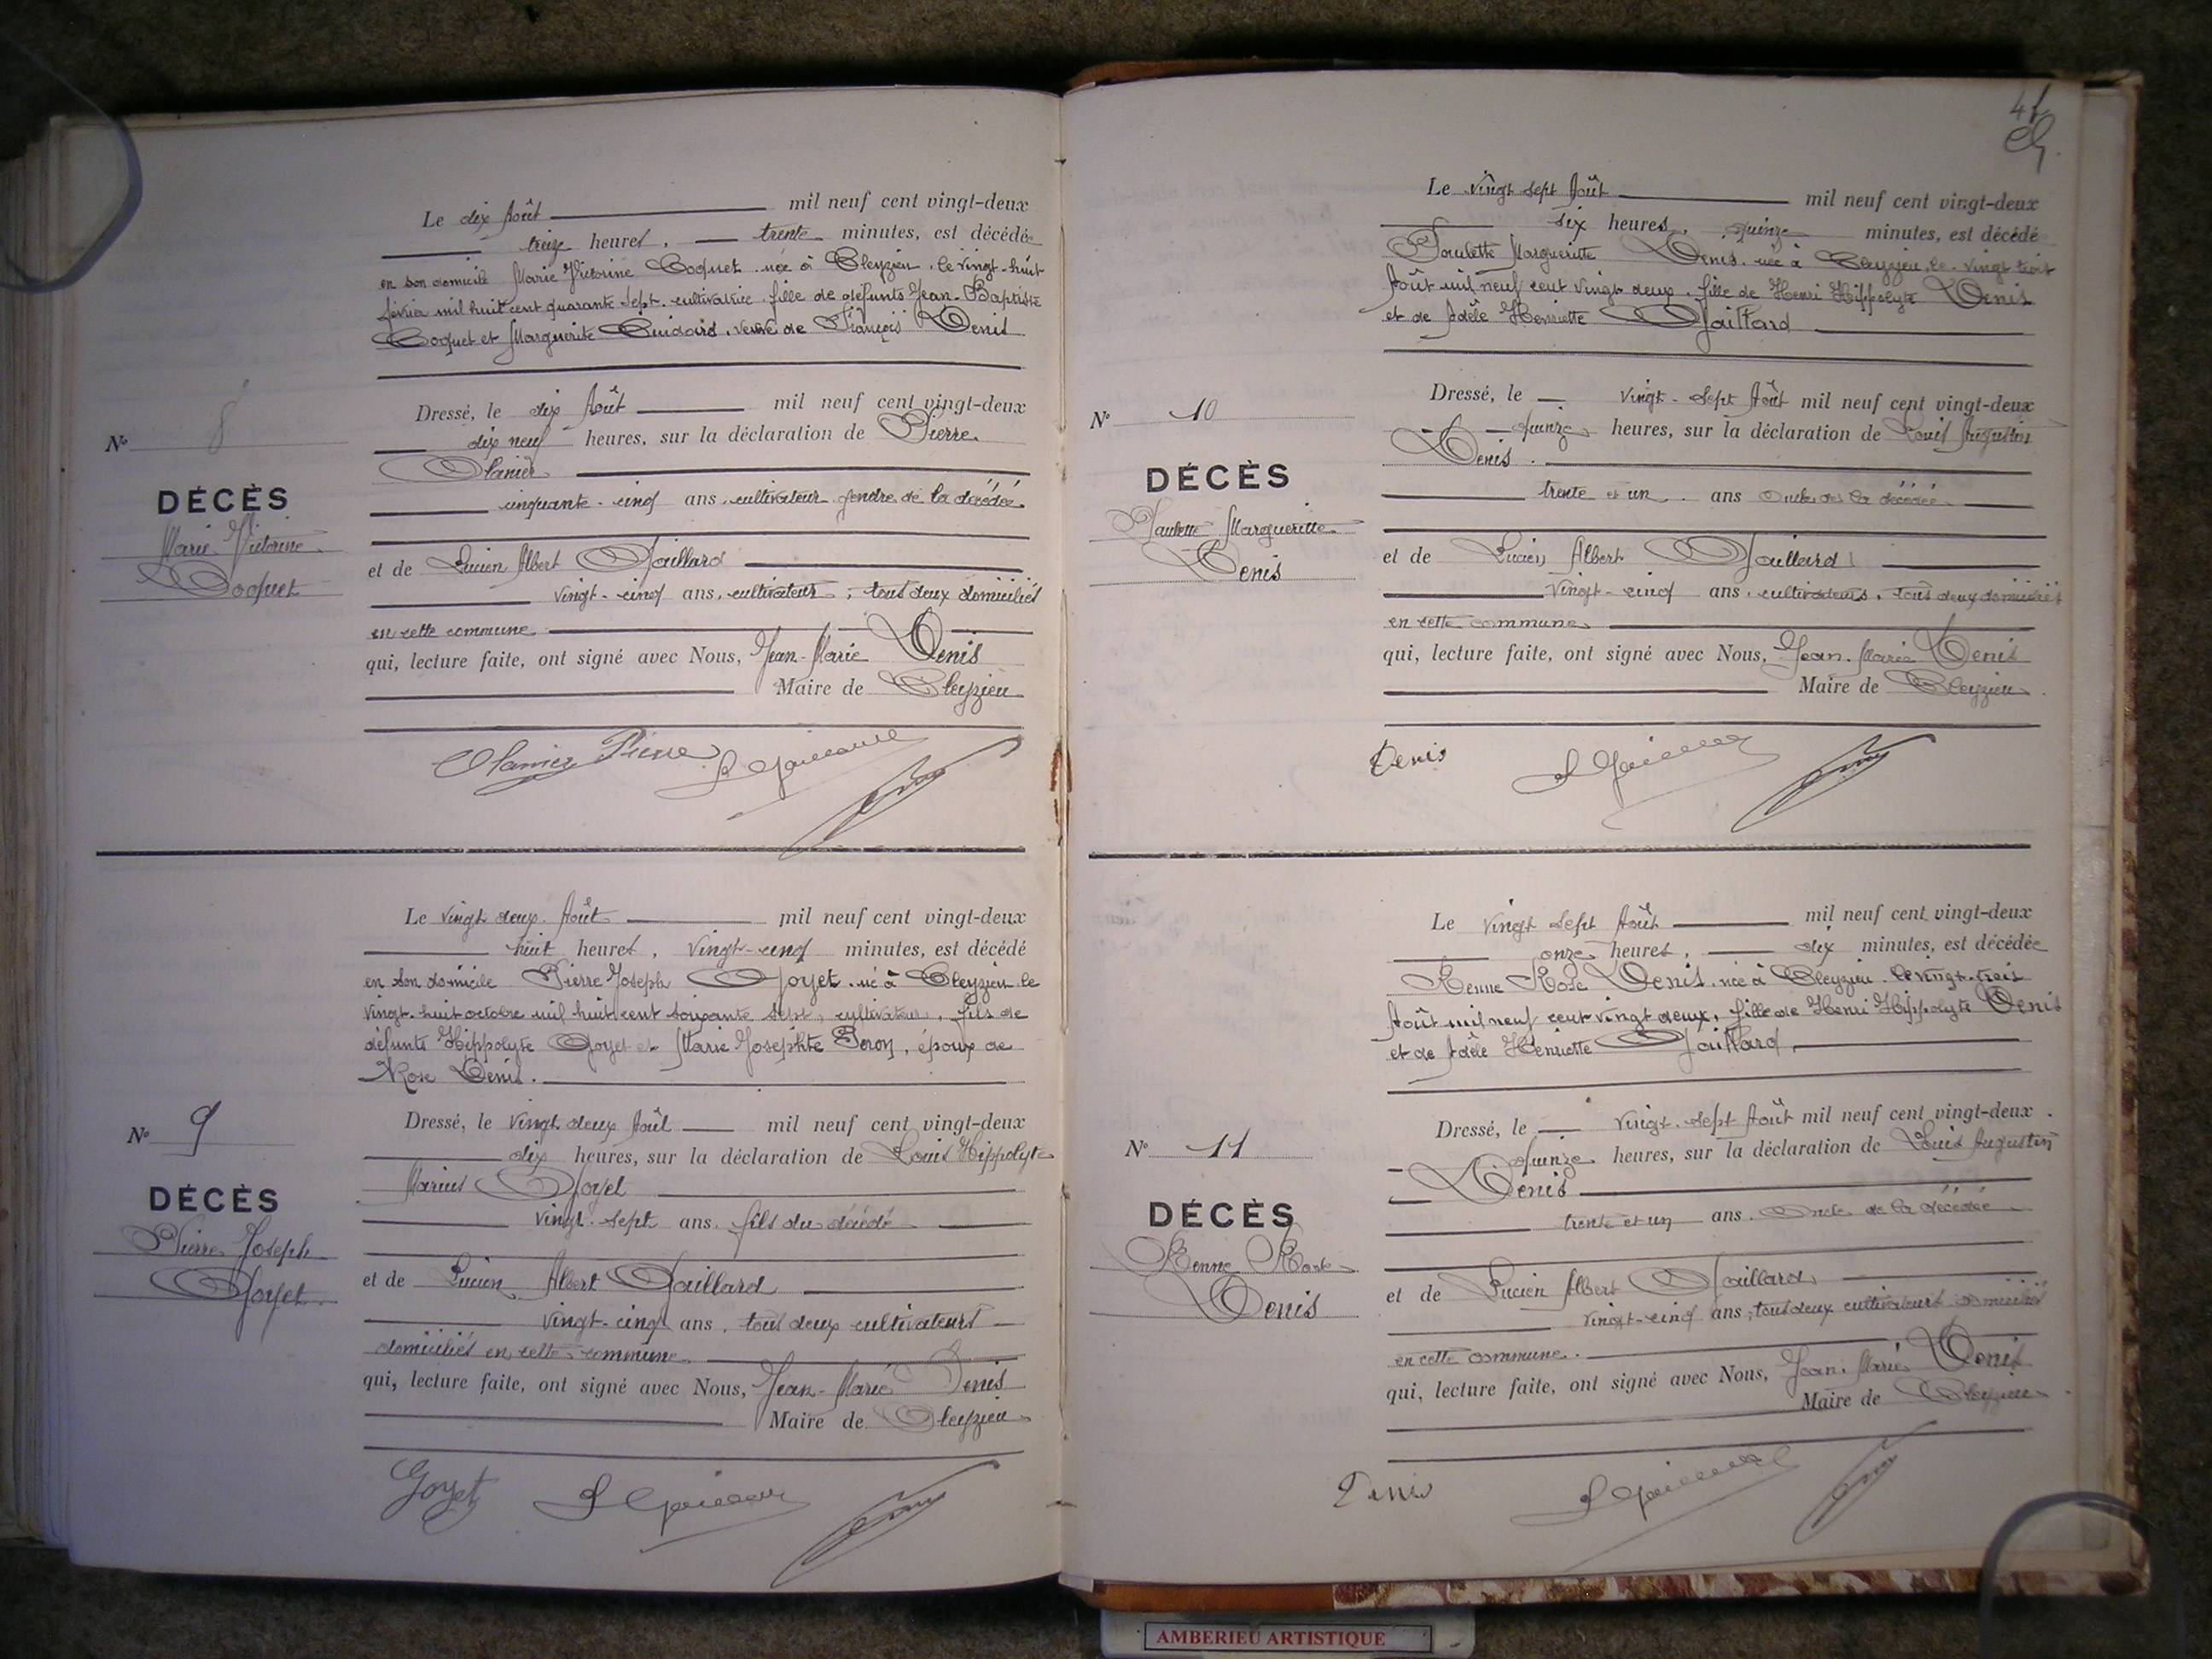 Le dix Août mil neuf cent vingt-deux
treize heures, trente minutes, est décédée
en son domicile Marie Victorine Coquet née à Cleyzieu, le vingt-huit
février mil huit cent quarante sept, cultivatrice, fille de défunts Jean-Baptiste
Coquet et Marguerite, veuve de François Denis
Dressé, le dix Août mil neuf cent vingt-deux
dix neuf heures, sur la déclaration de Pierre
Olanier
cinquante-cinq ans, cultivateur gendre de la décédée
et de Lucien Albert Gaillard
vingt-cinq ans, cultivateur, tous deux domiciliés
en cette commune
qui, lecture faite, ont signé avec Nous, Jean-Marie Denis
Maire de Cleyzieu
Olanier Pierre
N° 8
DÉCÈS
Marie Victorine
Coquet
Le vingt deux Août mil neuf cent vingt-deux
huit heures, vingt-cinq minutes, est décédé
en son domicile Pierre Joseph Goyet né à Cleyzieu le
vingt-huit octobre mil huit cent soixante sept, cultivateur, fils de
défunts Hippolyte Goyet et Marie Josephte, époux de
Rose Denis.
Dressé, le vingt deux Août mil neuf cent vingt-deux
dix heures, sur la déclaration de Louis Hippolyte
Marius Goyet
vingt-sept ans, fils du décédé
et de Lucien Albert Gaillard
vingt-cinq ans, tous deux cultivateurs
domiciliés en cette commune
qui, lecture faite, ont signé avec Nous, Jean-Marie Denis
Maire de Cleyzieu
Goyet
N° 9
DÉCÈS
Pierre Joseph
Goyet
41
Le vingt sept Août mil neuf cent vingt-deux
six heures, quinze minutes, est décédé
Paulette Margueritte Denis, née à Cleyzieu, le vingt trois
Août mil neuf cent vingt deux, fille de Henri Hippolyte Denis
et de Adèle Henriette Gaillard
Dressé, le vingt-sept Août mil neuf cent vingt-deux
quinze heures, sur la déclaration de Louis Augustin
Denis.
trente et un ans oncle de la décédée
et de Lucien Albert Gaillard
vingt-cinq ans, cultivateurs, tous deux domiciliés
en cette commune
qui, lecture faite, ont signé avec Nous, Jean-Marie Denis
Maire de Cleyzieu
Denis
N° 10
DÉCÈS
Paulette Margueritte
Denis
Le vingt sept Août mil neuf cent vingt-deux
onze heures, dix minutes, est décédée
Renne Rose Denis, née à Cleyzieu le vingt-trois
Août mil neuf cent vingt deux, fille de Henri Hippolyte Denis
et de Adèle Henriette Gaillard,
Dressé, le vingt-sept Août mil neuf cent vingt-deux
quinze heures, sur la déclaration de Louis Augustin
Denis
trente et un ans. Oncle de la décédée
et de Lucien Albert Gaillard
vingt-cinq ans, tous deux cultivateurs domiciliés
en cette commune.
qui, lecture faite, ont signé avec Nous, Jean-Marie Denis
Maire de Cleyzieu
Denis
N° 11
DÉCÈS
Renne Rose
Denis
AMBERIEU ARTISTIQUE